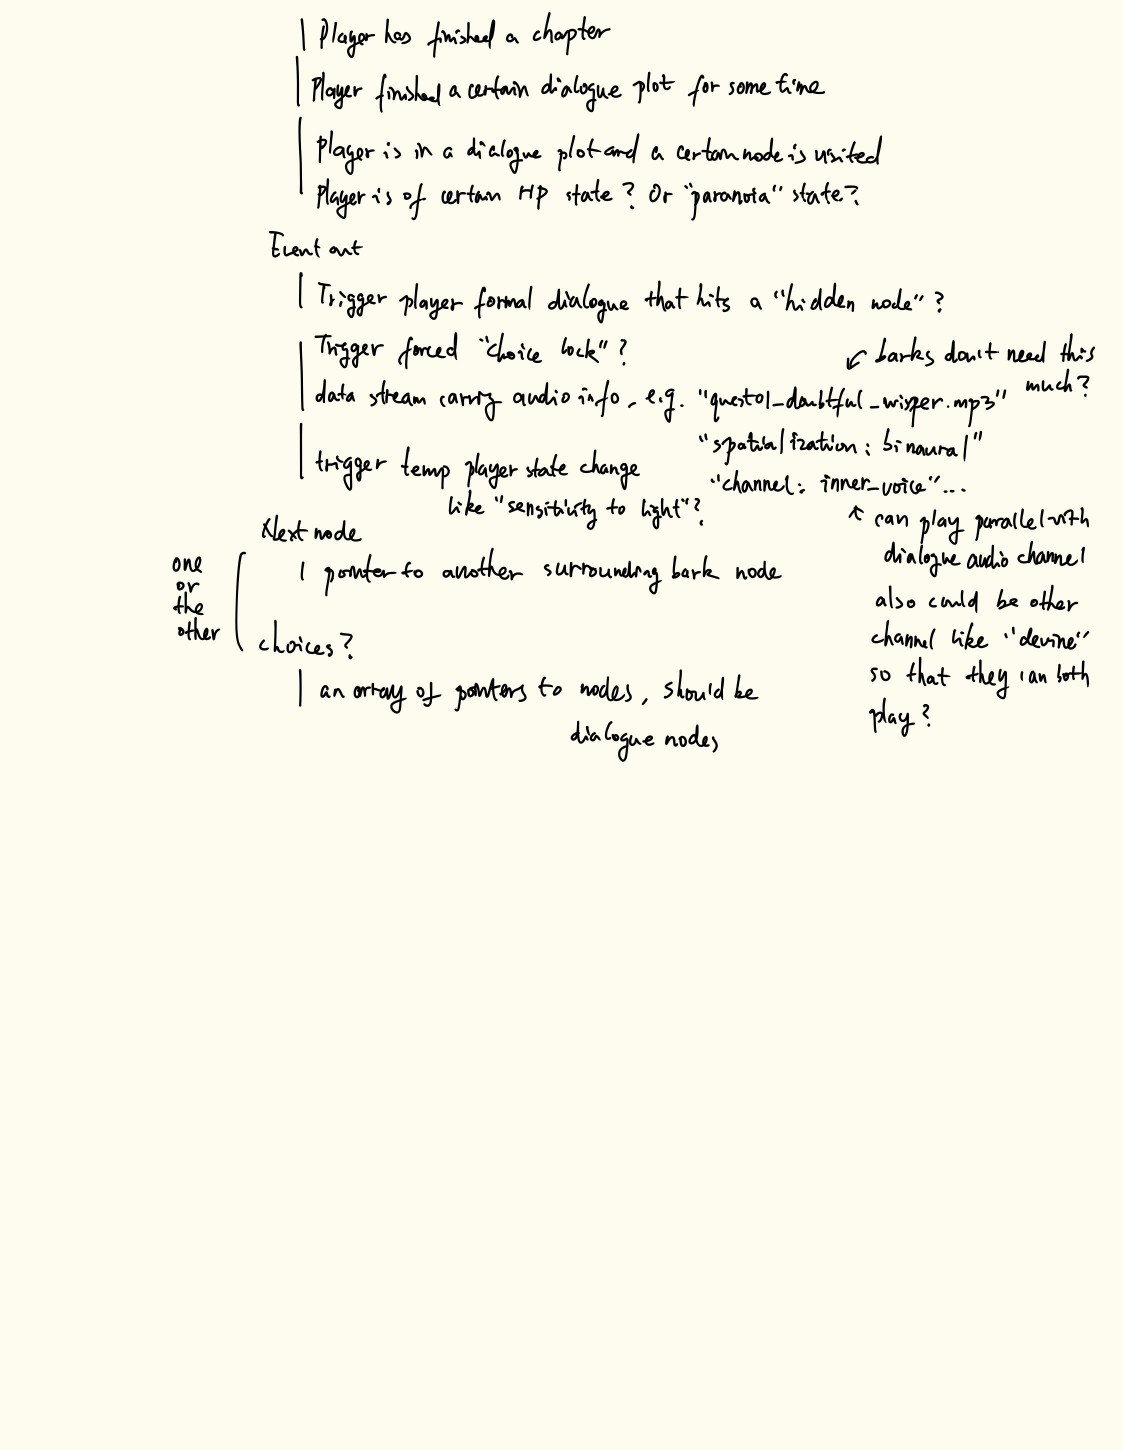 Player has finished a chapter
Player finished a certain dialogue plot for some time
Player is in a dialogue plot and a certain node is visited
Player is of certain HP state? Or "paranoia" state?
Event out
Trigger player formal dialogue that hits a "hidden node"?
Trigger forced "choice lock"?
barks don't need this
much?
data stream carring audio info, e.g. "quest01_doubtful_wisper.mp3"
"spatialization: binaural"
trigger temp player state change
"channel: inner_voice"...
like "sensitivity to light"?
can play parallel with
dialogue audio channel
also could be other
channel like "devine"
so that they can both
play?
Next node
one
or
the
other
pointer to another surrounding bark node
choices?
an array of pointers to nodes, should be
dialogue nodes